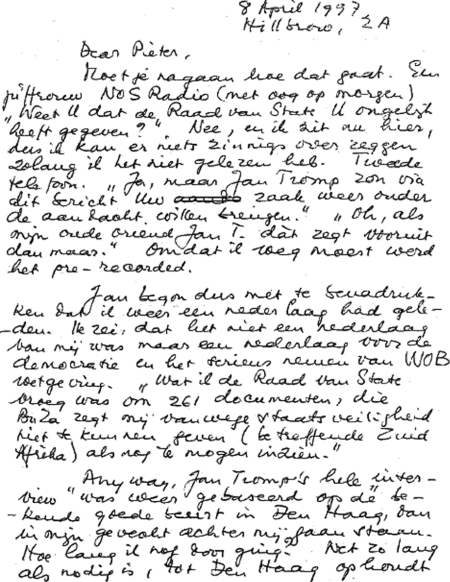 8 April 1997
Hillbrow, ZA
Dear Pieter,
Moet je nagaan hoe dat gaat. Een
juffrouw NOS Radio (met oog op morgen)
„Weet U dat de Raad van State U ongelijk
heeft gegeven?". Nee, en ik zit nu hier,
dus ik kan er niets zinnigs over zeggen
zolang ik het niet gelezen heb. Tweede
telefoon. „Ja, maar Jan Tromp zou via
dit bericht Uw zaak weer onder
de aandacht willen brengen." „Oh, als
mijn oude vriend Jan T. dàt zegt vooruit
dan maar." Omdat ik weg moest werd
het pre-recorded.
Jan begon dus met te benadruk-
ken dat ik weer een nederlaag had gele-
-den. Ik zei, dat het niet een nederlaag
van mij was maar een nederlaag voor de
democratie en het serieus nemen van WOB
wetgeving. „Wat ik de Raad van State
vroeg was om 261 documenten, die
BuZa zegt mij vanwege staatsveiligheid
niet te kunnen geven (betreffende Zuid
Afrika) alsnog te mogen inzien."
Anyway, Jan Tromp's hele inter-
view was weer gebaseerd op de be-
-kende goede beest in Den Haag, dan
in mijn gevecht achter mij gaan staan.
Hoe lang ik nog door ging. Net zo lang
als nodig is, tot Den Haag ophoudt